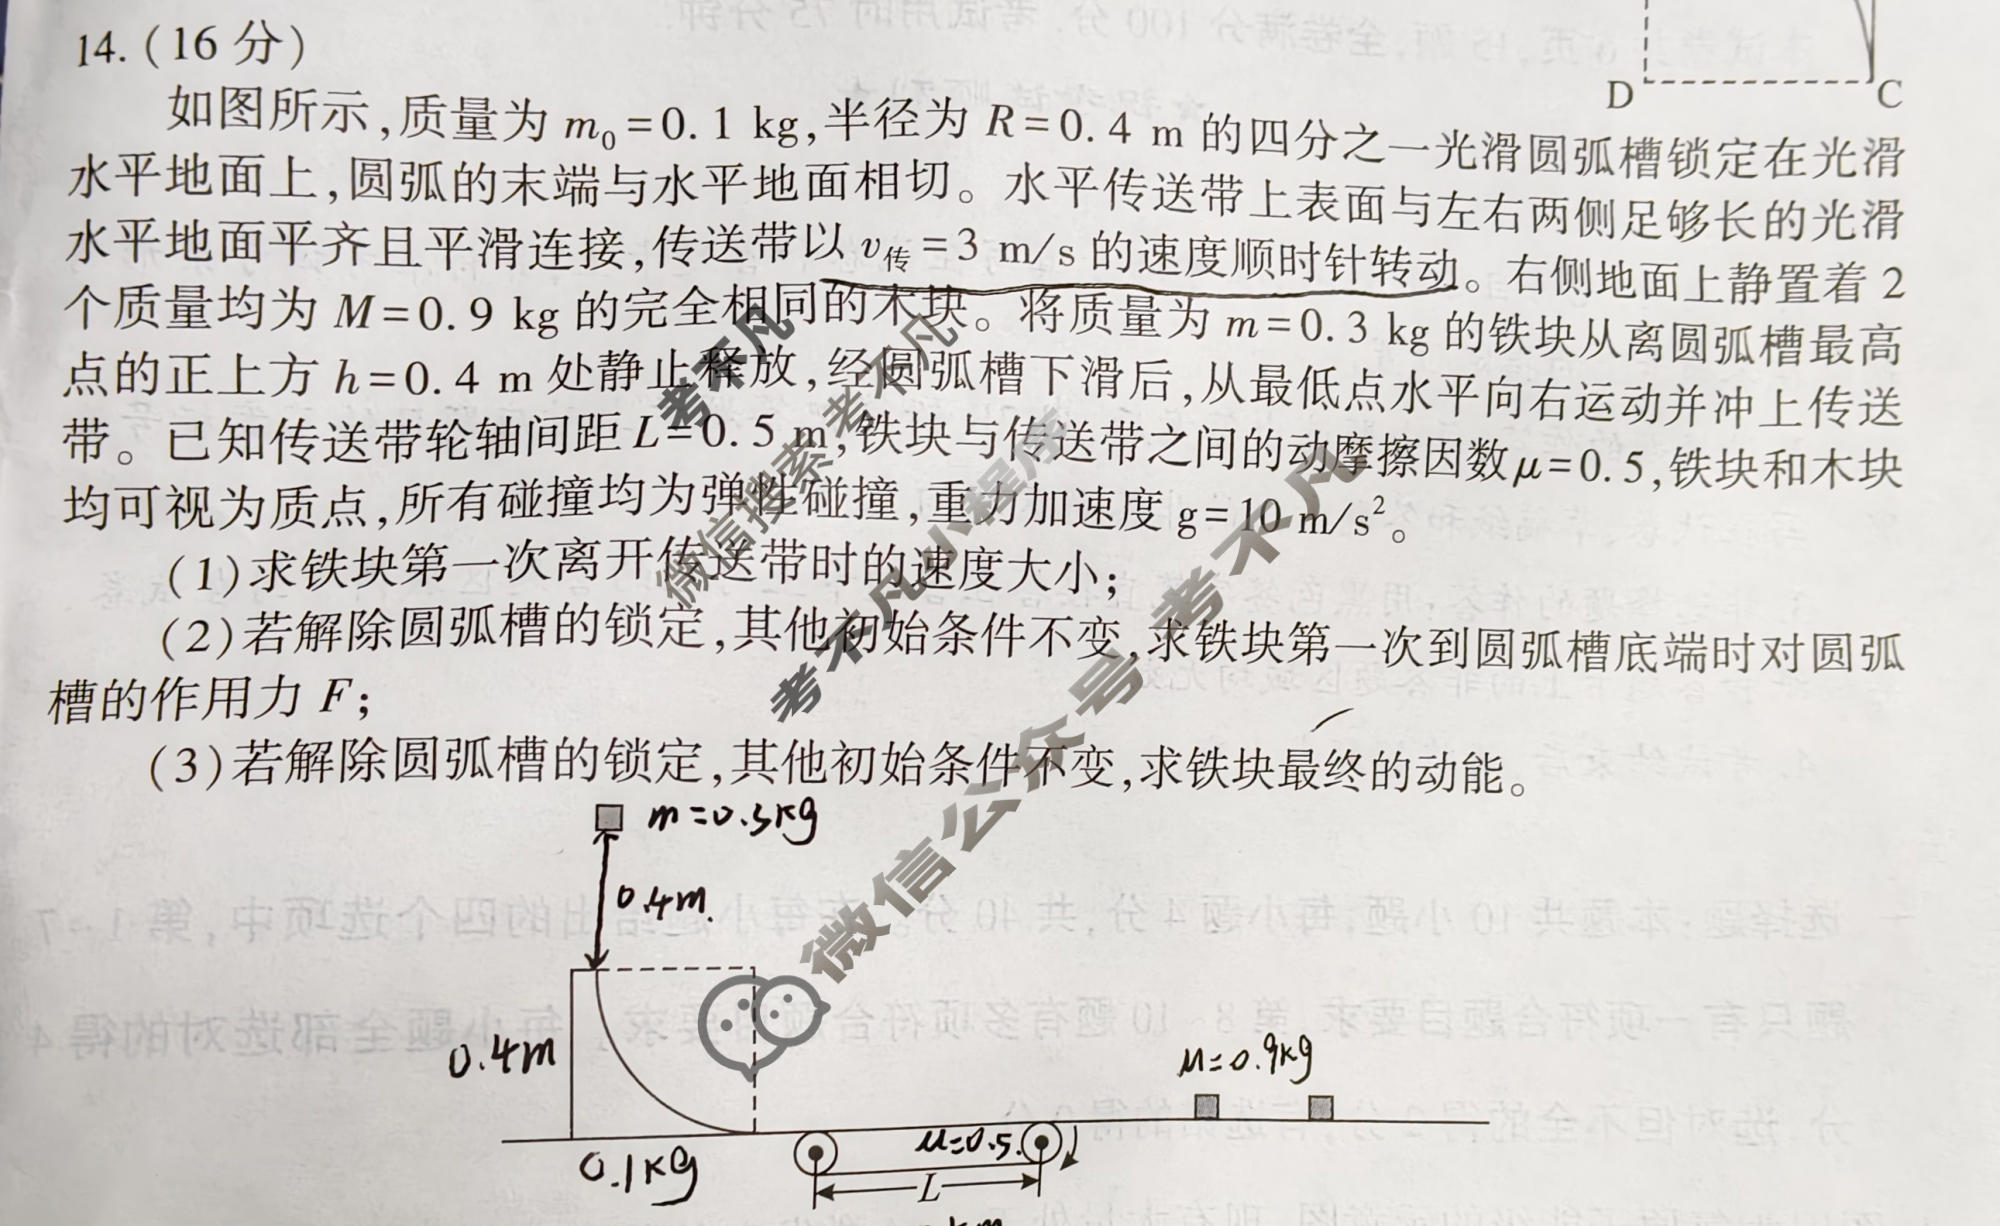 14. (16 分)
D
C
如图所示,质量为 m₀=0.1 kg,半径为 R=0.4 m 的四分之一光滑圆弧槽锁定在光滑
水平地面上,圆弧的末端与水平地面相切。水平传送带上表面与左右两侧足够长的光滑
水平地面平齐且平滑连接,传送带以 v传=3 m/s 的速度顺时针转动。右侧地面上静置着 2
个质量均为 M=0.9 kg 的完全相同的木块。将质量为 m=0.3 kg 的铁块从离圆弧槽最高
点的正上方 h=0.4 m 处静止释放,经圆弧槽下滑后,从最低点水平向右运动并冲上传送
带。已知传送带轮轴间距 L=0.5 m,铁块与传送带之间的动摩擦因数 μ=0.5,铁块和木块
均可视为质点,所有碰撞均为弹性碰撞,重力加速度 g=10 m/s²。
(1)求铁块第一次离开传送带时的速度大小;
(2)若解除圆弧槽的锁定,其他初始条件不变,求铁块第一次到圆弧槽底端时对圆弧
槽的作用力 F;
(3)若解除圆弧槽的锁定,其他初始条件不变,求铁块最终的动能。
考不凡
微信搜索 考不凡
考不凡小程序
微信公众号 考不凡
m=0.3kg
0.4m.
0.4m
M=0.9kg
μ=0.5.
0.1kg
L